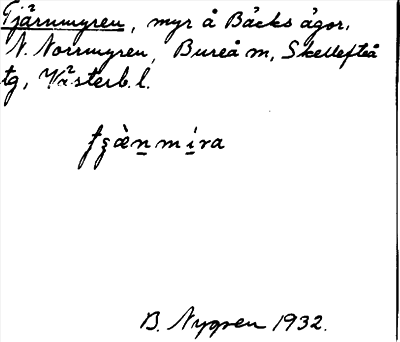 Tjärnmyren, myr å Bäcks ägor,
N. Norrmyren, Bureå m, Skellefteå
tg, Västerb. l.
B. Nygren 1932.